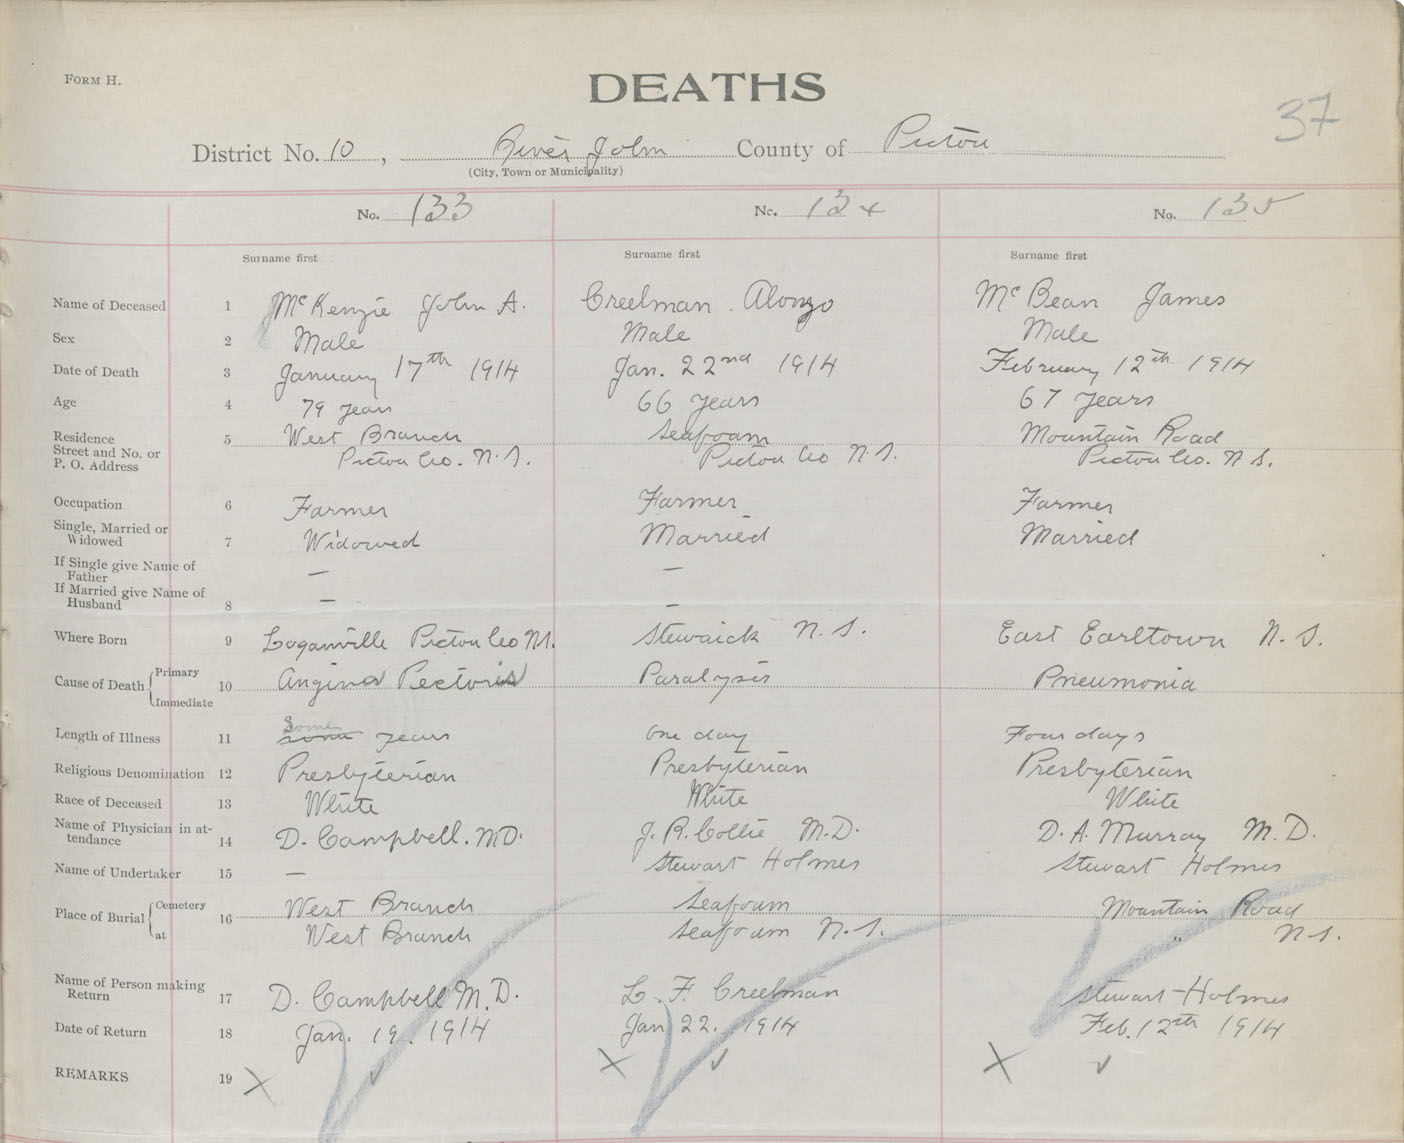 FORM H.
DEATHS
37
District No. 10, River John County of Pictou
(City, Town or Municipality)
No. 133 No. 134 No. 135
Surname first Surname first Surname first
Name of Deceased 1 McKenzie John A. Creelman Alonzo McBean James
Sex 2 Male Male Male
Date of Death 3 January 17th 1914 Jan. 22nd 1914 February 12th 1914
Age 4 79 years 66 years 67 years
Residence 5 West Branch Seafoam Mountain Road
Street and No. or Pictou Co. N.S. Pictou Co N.S. Pictou Co. N.S.
P. O. Address
Occupation 6 Farmer Farmer Farmer
Single, Married or
Widowed 7 Widowed Married Married
If Single give Name of
Father — —
If Married give Name of
Husband 8 — —
Where Born 9 Loganville Pictou Co N.S. Stewaick N.S. East Earltown N.S.
Primary
Cause of Death 10 Angina Pectoris Paralysis Pneumonia
Immediate
Some
Length of Illness 11 some years One day Four days
Religious Denomination 12 Presbyterian Presbyterian Presbyterian
Race of Deceased 13 White White White
Name of Physician in at-
tendance 14 D. Campbell. M.D. J. R. Collie M.D. D. A. Murray M.D.
Name of Undertaker 15 — Stewart Holmes Stewart Holmes
Cemetery West Branch Seafoam Mountain Road
Place of Burial 16
at West Branch Seafoam N.S. " N.S.
Name of Person making
Return 17 D. Campbell M.D. L. F. Creelman Stewart Holmes
Date of Return 18 Jan. 19. 1914 Jan 22. 1914 Feb. 12th 1914
REMARKS 19 X ✓ X ✓ X ✓